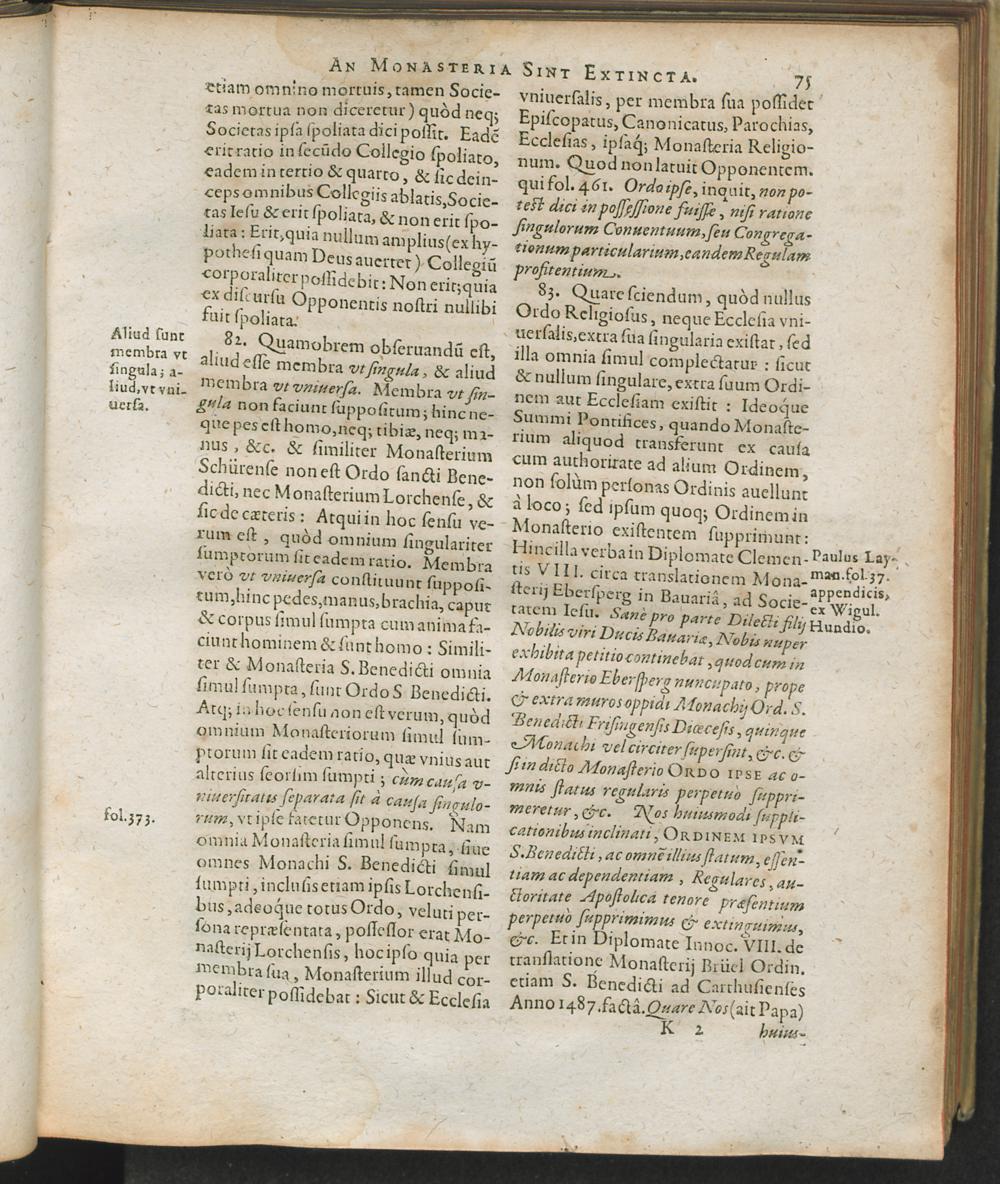 AN MONASTERIA SINT EXTINCTA.
75
etiam omnino mortuis, tamen Socie-
tas mortua non diceretur) quòd neq;
Societas ipsa spoliata dici possit. Eadẽ
erit ratio in secũdo Collegio spoliato,
eadem in tertio & quarto, & sic dein-
ceps omnibus Collegiis ablatis, Socie-
tas Iesu & erit spoliata, & non erit spo-
liata: Erit, quia nullum amplius (ex hy-
pothesi quam Deus auertet) Collegiũ
corporaliter possidebit: Non erit; quia
ex discursu Opponentis nostri nullibi
fuit spoliata.
Aliud sunt
membra vt
singula; a-
liud, vt vni-
uersa.
82. Quamobrem obseruandũ est,
aliud esse membra vt singula, & aliud
membra vt vniuersa. Membra vt sin-
gula non faciunt suppositum; hinc ne-
que pes est homo, neq; tibiæ, neq; ma-
nus, &c. & similiter Monasterium
Schürense non est Ordo sancti Bene-
dicti, nec Monasterium Lorchense, &
sic de cæteris: Atqui in hoc sensu ve-
rum est, quòd omnium singulariter
sumptorum sit eadem ratio. Membra
verò vt vniuersa constituunt supposi-
tum, hinc pedes, manus, brachia, caput
& corpus simul sumpta cum anima fa-
ciunt hominem & sunt homo: Simili-
ter & Monasteria S. Benedicti omnia
simul sumpta, sunt Ordo S Benedicti.
Atq; in hoc sensu non est verum, quòd
omnium Monasteriorum simul sum-
ptorum sit eadem ratio, quæ vnius aut
alterius seorsim sumpti; cum causa v-
niuersitatis separata sit à causa singulo-
fol. 373.
rum, vt ipse fatetur Opponens. Nam
omnia Monasteria simul sumpta, siue
omnes Monachi S. Benedicti simul
sumpti, inclusis etiam ipsis Lorchensi-
bus, adeoque totus Ordo, veluti per-
sona repræsentata, possessor erat Mo-
nasterij Lorchensis, hoc ipso quia per
membra sua, Monasterium illud cor-
poraliter possidebat: Sicut & Ecclesia
vniuersalis, per membra sua possidet
Episcopatus, Canonicatus, Parochias,
Ecclesias, ipsaq; Monasteria Religio-
num. Quod non latuit Opponentem.
qui fol. 461. Ordo ipse, inquit, non po-
test dici in possessione fuisse, nisi ratione
singulorum Conuentuum, seu Congrega-
tionum particularium, eandem Regulam
profitentium.
83. Quare sciendum, quòd nullus
Ordo Religiosus, neque Ecclesia vni-
uersalis, extra sua singularia existat, sed
illa omnia simul complectatur: sicut
& nullum singulare, extra suum Ordi-
nem aut Ecclesiam existit: Ideoque
Summi Pontifices, quando Monaste-
rium aliquod transferunt ex causa
cum authoritate ad alium Ordinem,
non solùm personas Ordinis auellunt
à loco; sed ipsum quoq; Ordinem in
Monasterio existentem supprimunt:
Hinc illa verba in Diplomate Clemen-
tis VIII. circa translationem Mona-
sterij Ebersperg in Bauariâ, ad Socie-
tatem Iesu. Sanè pro parte Dilecti filij
Paulus Lay-
man. fol. 37.
appendicis,
ex Wigul.
Hundio.
Nobilis viri Ducis Bauariæ, Nobis nuper
exhibita petitio continebat, quod cum in
Monasterio Ebersperg nuncupato, prope
& extra muros oppidi Monachij Ord. S.
Benedicti Frisingensis Diœcesis, quinque
Monachi vel circiter supersint, &c. &
si in dicto Monasterio ORDO IPSE ac o-
mnis status regularis perpetuò suppri-
meretur, &c. Nos huiusmodi suppli-
cationibus inclinati, ORDINEM IPSVM
S. Benedicti, ac omnẽ illius statum, essen-
tiam ac dependentiam, Regulares, au-
ctoritate Apostolica tenore præsentium
perpetuò supprimimus & extinguimus,
&c. Et in Diplomate Innoc. VIII. de
translatione Monasterij Brüel Ordin.
etiam S. Benedicti ad Carthusienses
Anno 1487. factâ. Quare Nos (ait Papa)
K 2
huius-